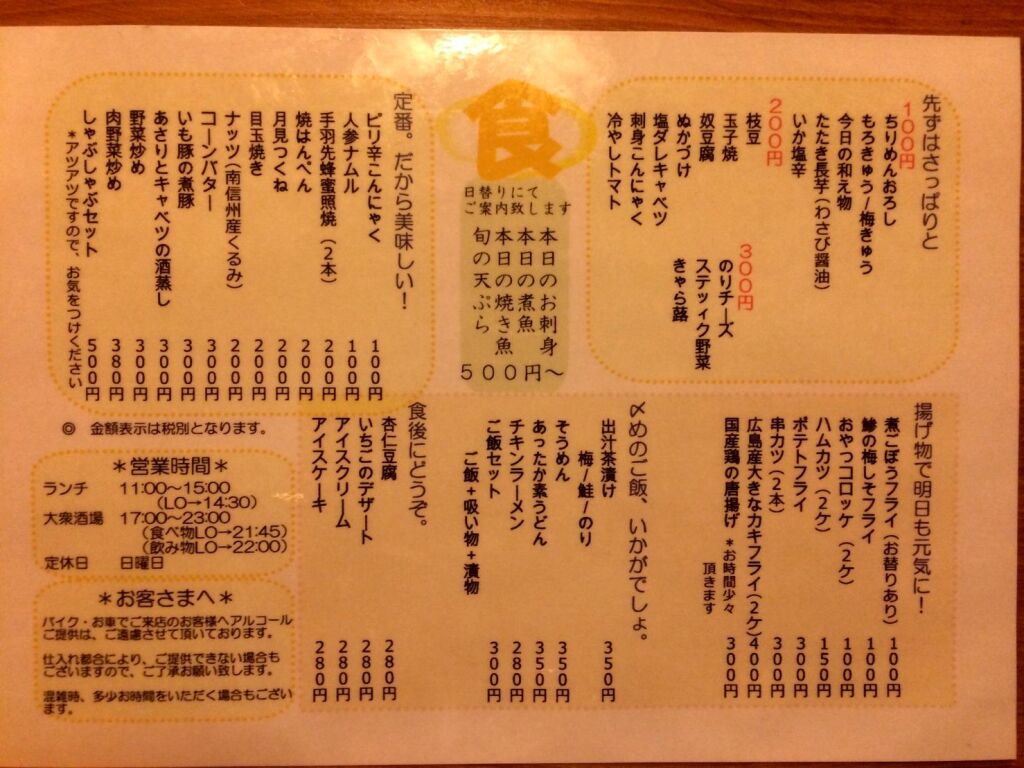 先ずはさっぱりと
100円
ちりめんおろし
もろきゅう/梅きゅう
今日の和え物
たたき長芋(わさび醤油)
いか塩辛
200円
枝豆
玉子焼
奴豆腐
ぬかづけ
塩ダレキャベツ
刺身こんにゃく
冷やしトマト
300円
のりチーズ
ステッィク野菜
きゃら蕗
食
日替りにて
ご案内致します
本日のお刺身
本日の煮魚
本日の焼き魚
旬の天ぷら
500円〜
定番。だから美味しい!
ピリ辛こんにゃく 100円
人参ナムル 100円
手羽先蜂蜜照焼(2本) 200円
焼はんぺん 200円
月見つくね 200円
目玉焼き 200円
ナッツ(南信州産くるみ) 200円
コーンバター 300円
いも豚の煮豚 300円
あさりとキャベツの酒蒸し 300円
野菜炒め 300円
肉野菜炒め 380円
しゃぶしゃぶセット 500円
*アツアツですので、お気をつけください
揚げ物で明日も元気に!
煮ごぼうフライ(お替りあり) 100円
鯵の梅しそフライ 100円
おやっコロッケ(2ケ) 100円
ハムカツ(2ケ) 150円
ポテトフライ 300円
串カツ(2本) 300円
広島産大きなカキフライ(2ケ) 400円
国産鶏の唐揚げ *お時間少々 300円
頂きます
〆めのご飯、いかがでしょ。
出汁茶漬け 350円
梅/鮭/のり
そうめん 350円
あったか素うどん 350円
チキンラーメン 280円
ご飯セット 300円
ご飯+吸い物+漬物
食後にどうぞ。
杏仁豆腐 280円
いちごのデザート 280円
アイスクリーム 280円
アイスケーキ 280円
◎ 金額表示は税別となります。
*営業時間*
ランチ 11:00〜15:00
(LO→14:30)
大衆酒場 17:00〜23:00
(食べ物LO→21:45)
(飲み物LO→22:00)
定休日 日曜日
*お客さまへ*
バイク・お車でご来店のお客様へアルコール
ご提供は、ご遠慮させて頂いております。
仕入れ都合により、ご提供できない場合も
ございますので、ご了承お願い致します。
混雑時、多少お時間をいただく場合もござい
ます。